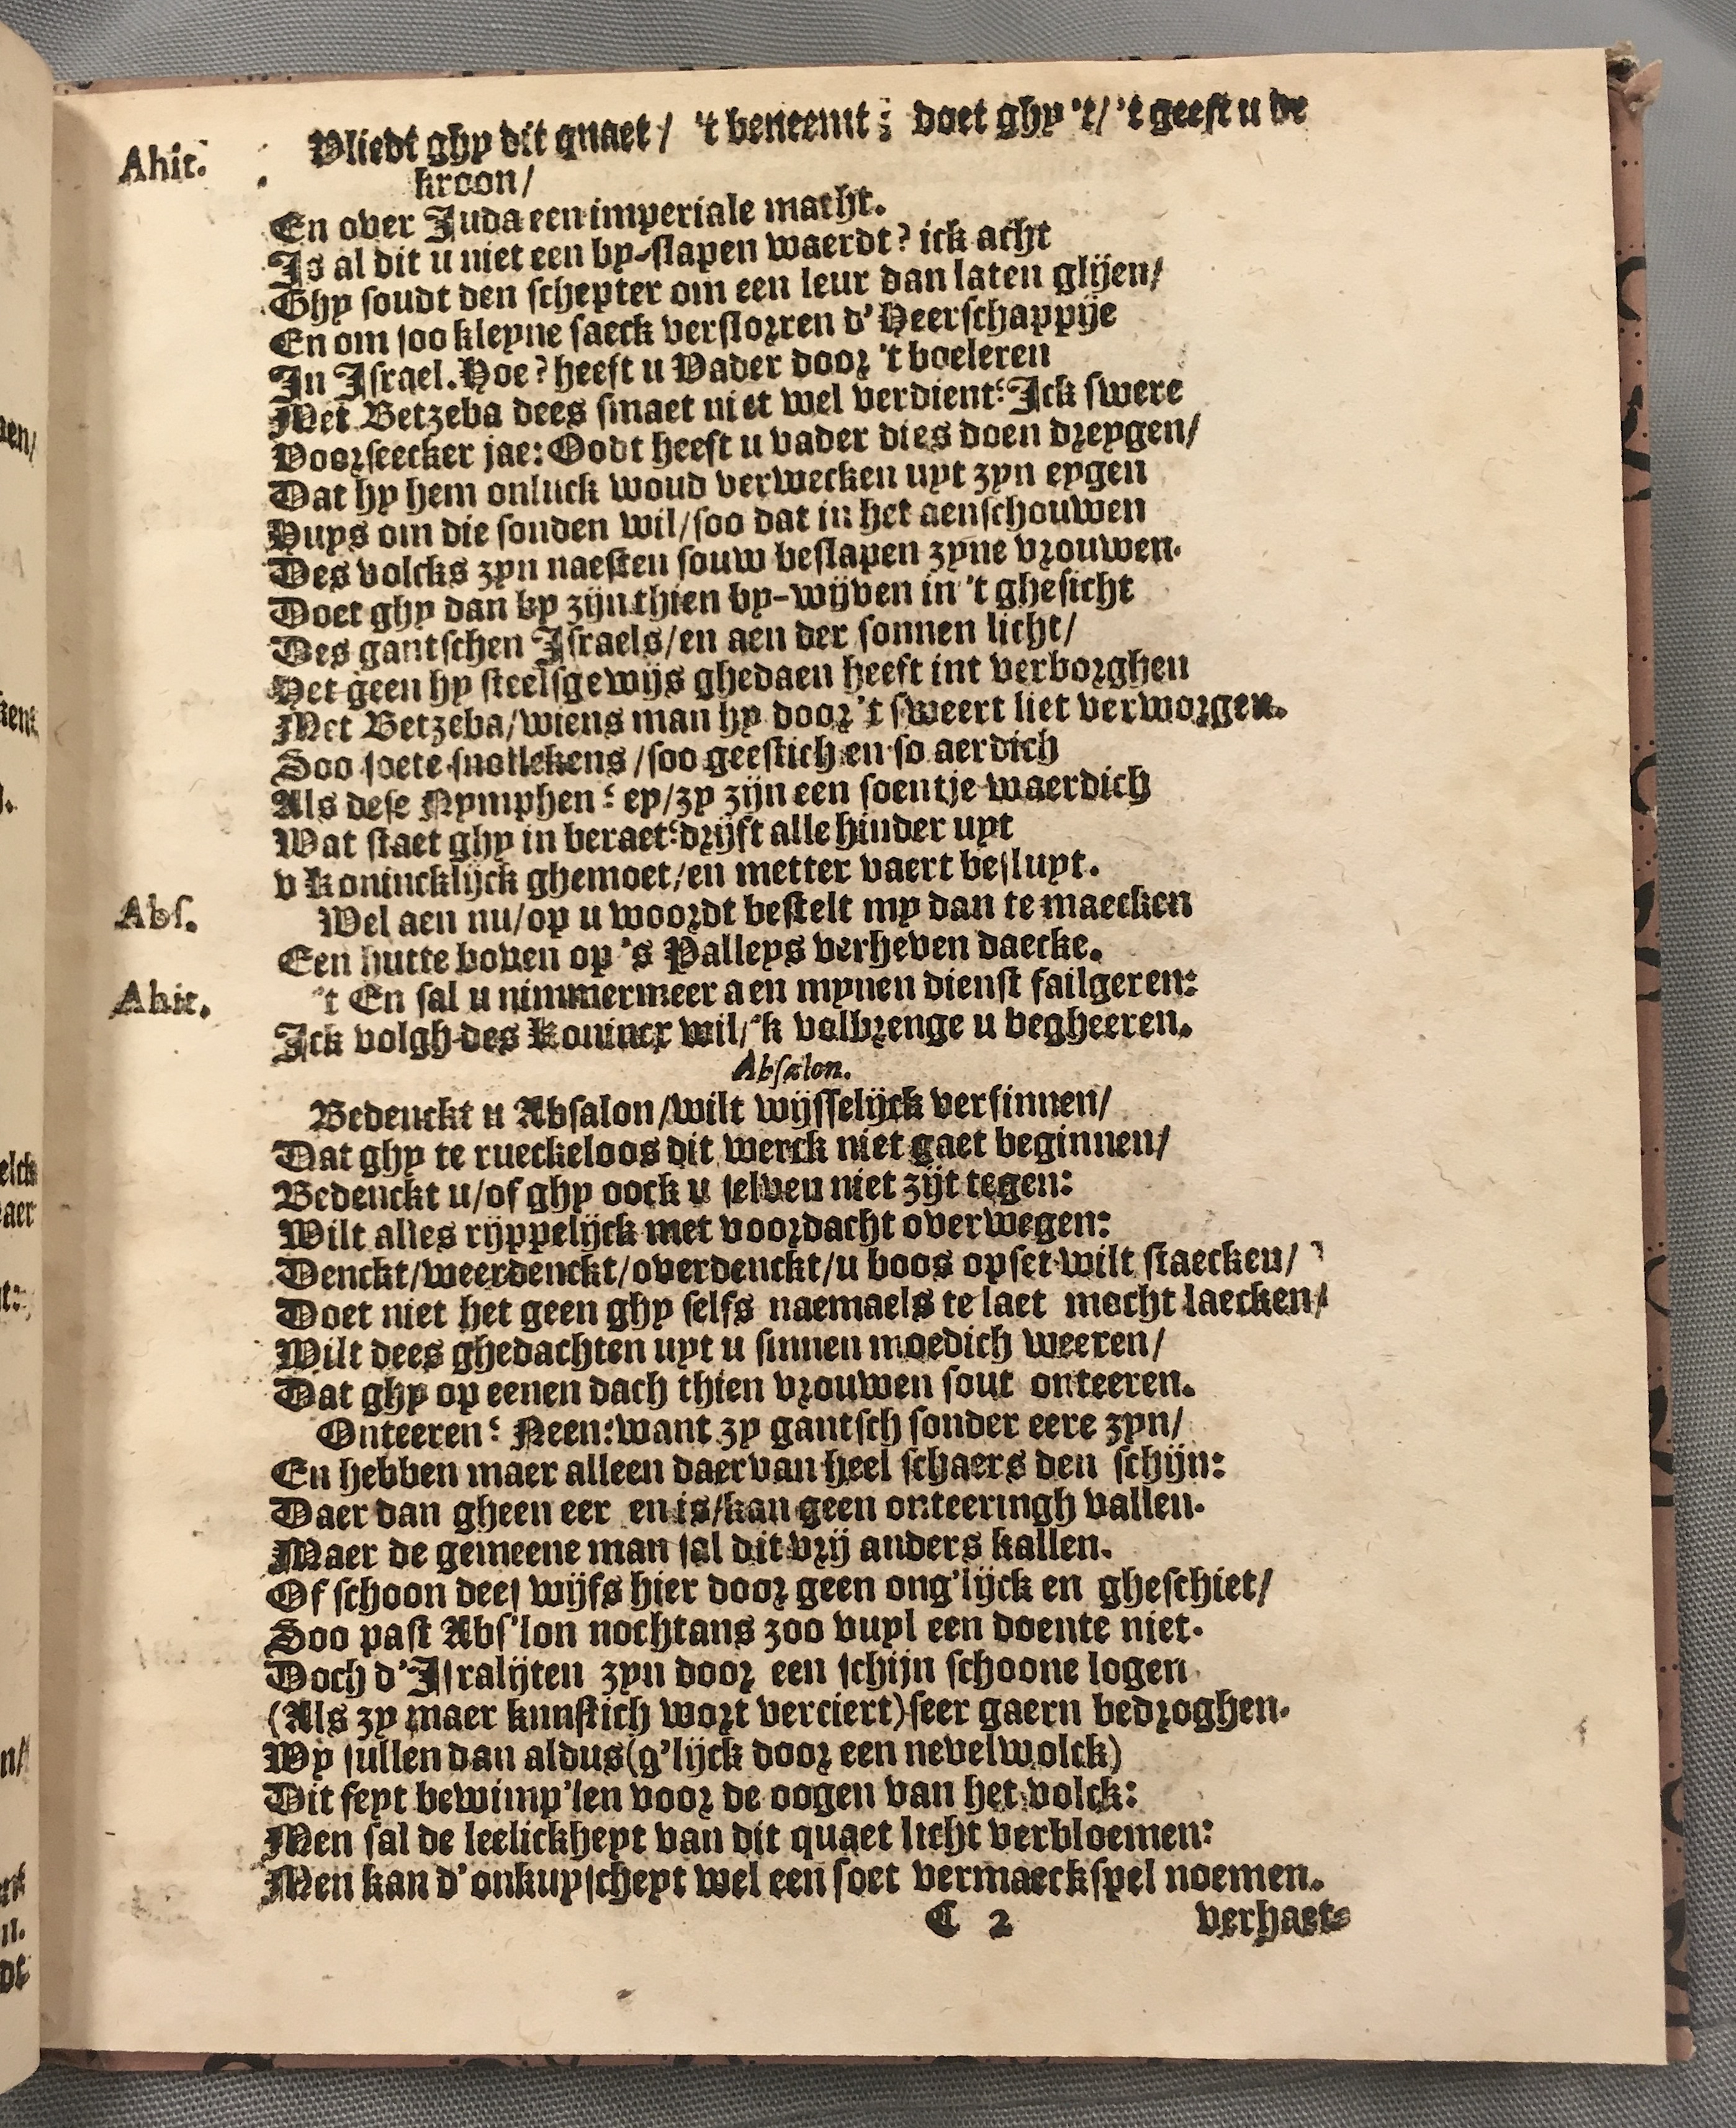 Ahit. Vliedt ghy dit quaet / 't beneemt ; doet ghy 't / 't geeft u de
kroon /
En over Juda een imperiale macht.
Is al dit u niet een by-slapen waerdt? ick acht
Ghy soudt den schepter om een leur dan laten glijen /
En om soo kleyne saeck verslorren d' Heerschappije
In Israel. Hoe? heeft u Vader door 't boeleren
Met Betzeba dees smaet niet wel verdient? Ick swere
Voorseecker jae: Godt heeft u vader dies doen dreygen /
Dat hy hem onluck woud verwecken uyt zyn eygen
Huys om die sonden wil / soo dat in het aenschouwen
Des volcks zyn naesten souw beslapen zyne vrouwen.
Doet ghy dan by zijn thien by-wijven in 't ghesicht
Des gantschen Israels / en aen der sonnen licht /
Het geen hy steelsgewijs ghedaen heeft int verborghen
Met Betzeba / wiens man hy door 't sweert liet verworgen.
Soo soete snollekens / soo geestich en so aerdich
Als dese Nymphen? ey / zy zijn een soentje waerdich
Wat staet ghy in beraet? drijft alle hinder uyt
v Konincklijck ghemoet / en metter vaert besluyt.
Abs. Wel aen nu / op u woordt bestelt my dan te maecken
Een hutte boven op 's Palleys verheven daecke.
Ahit. 't En sal u nimmermeer aen mynen dienst failgeren:
Ick volgh des Konincx wil / 'k volbrenge u begheeren.
Absalon.
Bedenckt u Absalon / wilt wijsselijck versinnen /
Dat ghy te rueckeloos dit werck niet gaet beginnen /
Bedenckt u / of ghy oock u selven niet zijt tegen:
Wilt alles rijppelijck met voordacht overwegen:
Denckt / weerdenckt / overdenckt / u boos opset wilt staecken /
Doet niet het geen ghy selfs naemaels te laet mocht laecken /
Wilt dees ghedachten uyt u sinnen moedich weeren /
Dat ghy op eenen dach thien vrouwen sout onteeren.
Onteeren? Neen: want zy gantsch sonder eere zyn /
En hebben maer alleen daer van heel schaers den schijn:
Daer dan gheen eer en is / kan geen onteeringh vallen.
Maer de gemeene man sal dit vrij anders kallen.
Of schoon dees wijfs hier door geen ong'lijck en gheschiet /
Soo past Abs'lon nochtans zoo vuyl een doente niet.
Doch d'Isralijten zyn door een schijn schoone logen
(Als zy maer kunstich wort verciert) seer gaern bedroghen.
Wy sullen dan aldus (g'lijck door een nevelwolck)
Dit feyt bewimp'len voor de oogen van het volck:
Men sal de leelickheyt van dit quaet licht verbloemen:
Men kan d'onkuyscheyt wel een soet vermaeckspel noemen.
C 2 verhaet-